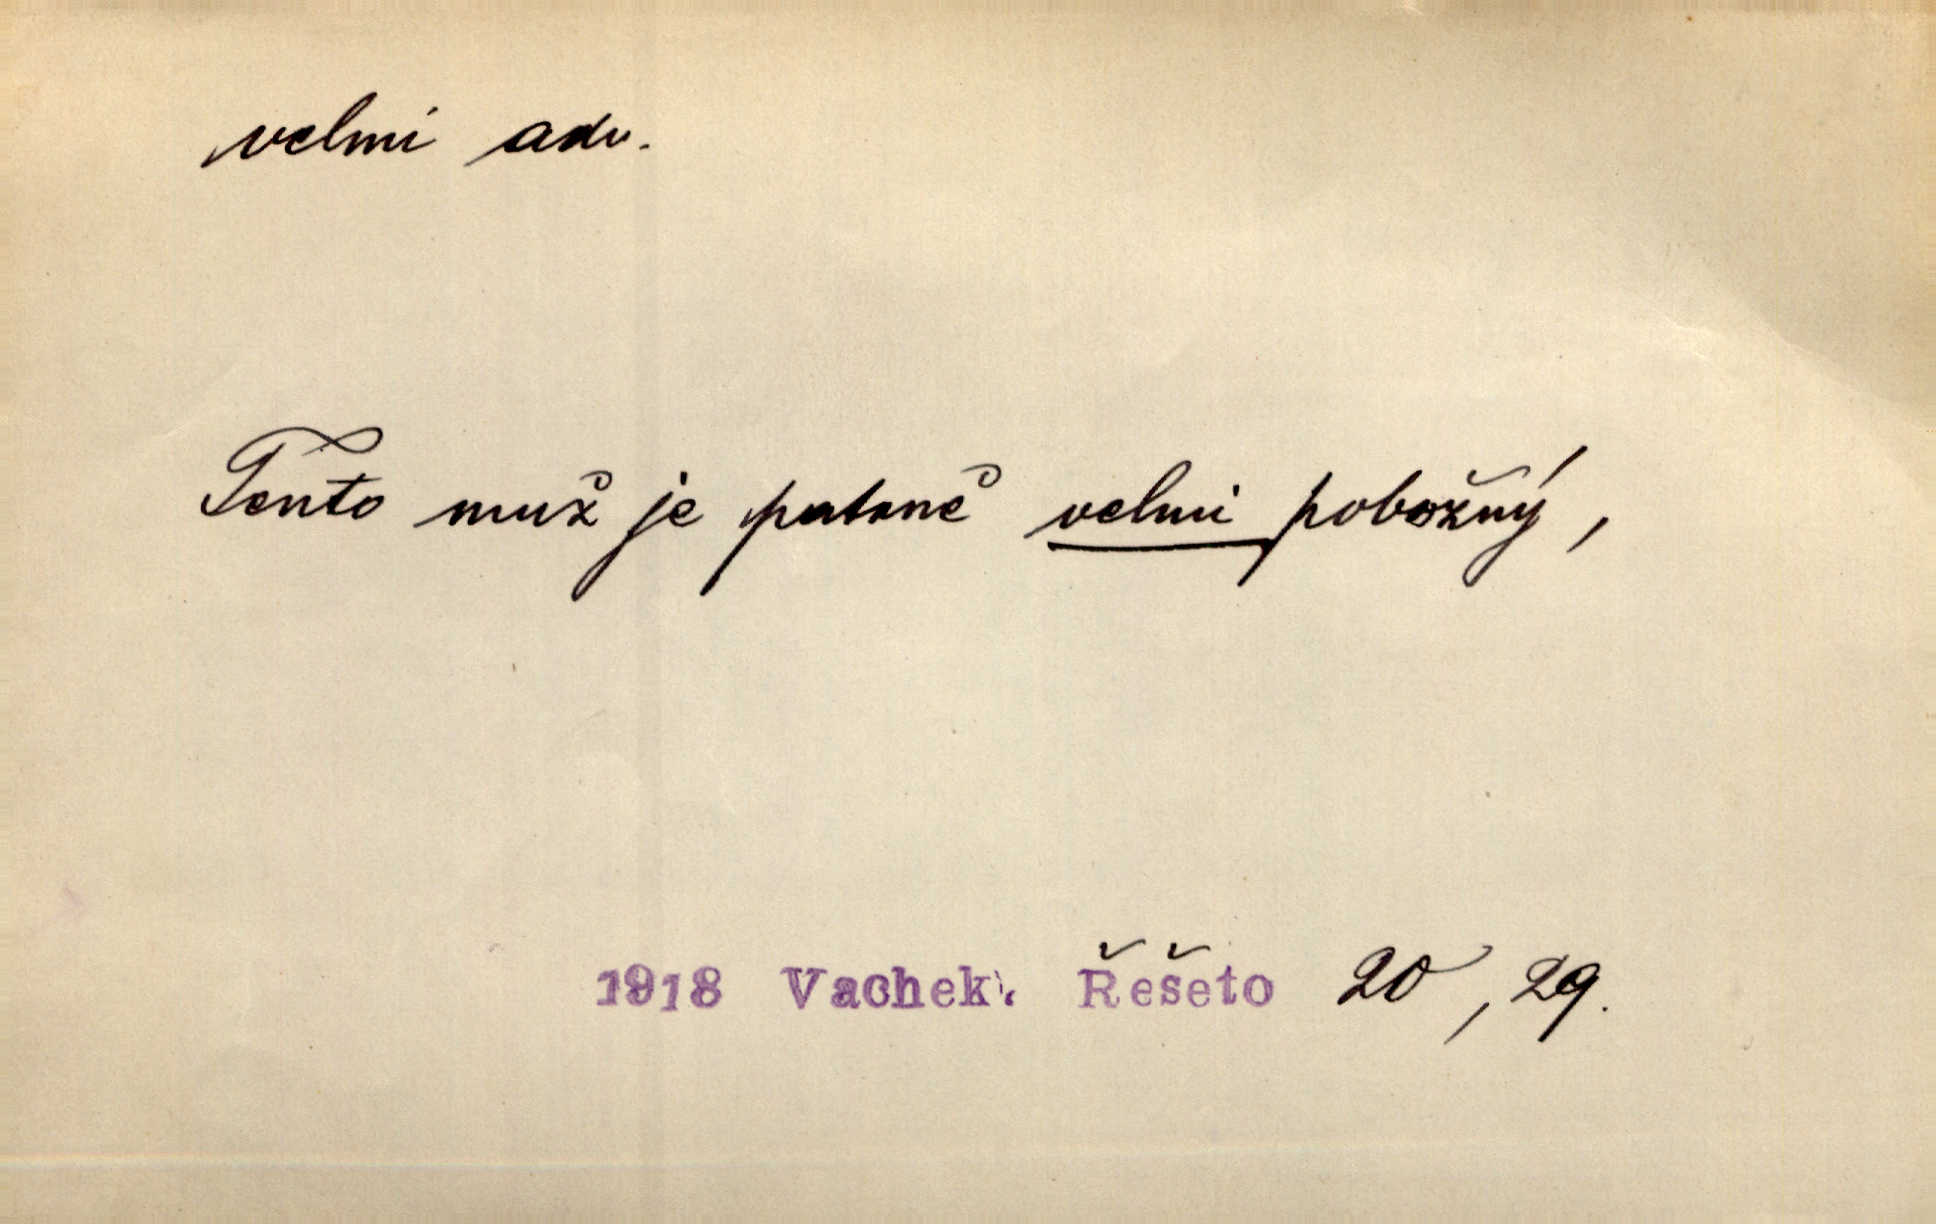 velmi adv.
Tento muž je patrně velmi pobožný,
1918 Vachek. Řešeto 20, 29.